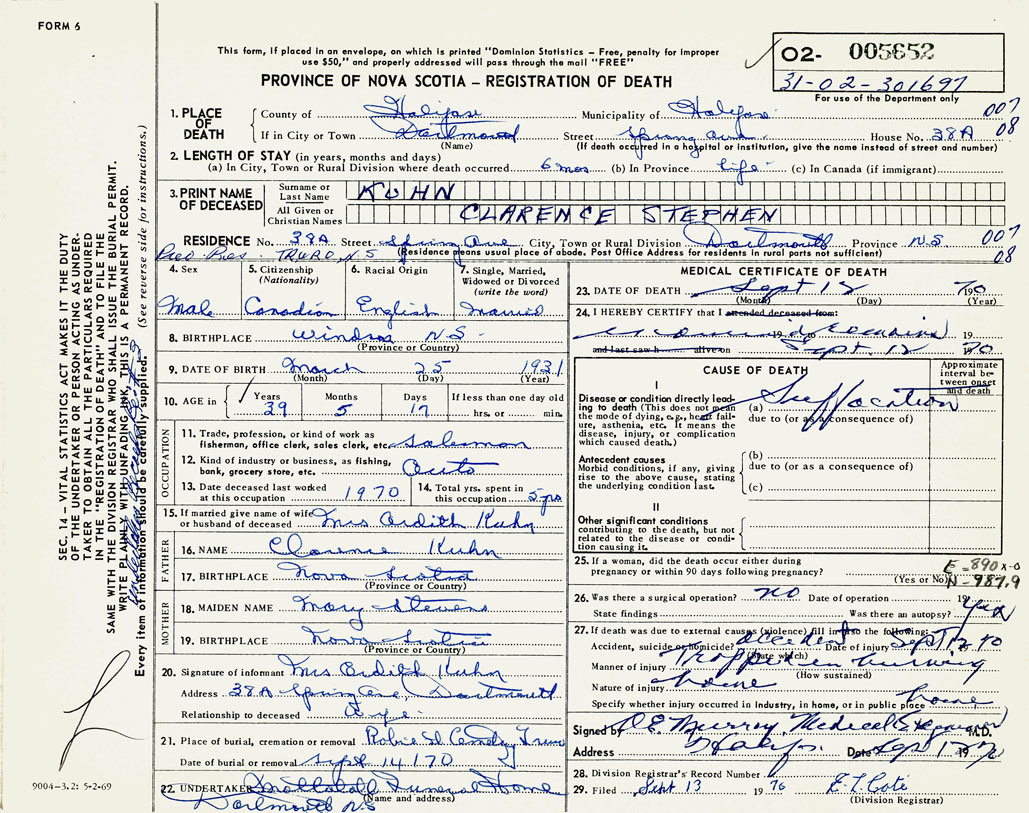 FORM 6
This form, if placed in an envelope, on which is printed "Dominion Statistics – Free, penalty for improper
use $50," and properly addressed will pass through the mail "FREE"
PROVINCE OF NOVA SCOTIA – REGISTRATION OF DEATH
02- 005652
31-02-301697
For use of the Department only
1. PLACE OF DEATH
County of Halifax Municipality of Halifax 007
If in City or Town Dartmouth Street Spring Ave. House No. 38A 08
(Name) (If death occurred in a hospital or institution, give the name instead of street and number)
2. LENGTH OF STAY (in years, months and days)
(a) In City, Town or Rural Division where death occurred 6 mos (b) In Province life (c) In Canada (if immigrant)
3. PRINT NAME OF DECEASED
Surname or Last Name KUHN
All Given or Christian Names CLARENCE STEPHEN
RESIDENCE No. 38A Street Spring Ave City, Town or Rural Division Dartmouth Province N.S 007
TRURO, N.S (Residence means usual place of abode. Post Office Address for residents in rural parts not sufficient) 08
4. Sex 5. Citizenship (Nationality) 6. Racial Origin 7. Single, Married, Widowed or Divorced (write the word)
Male Canadian English Married
8. BIRTHPLACE Windsor N.S.
(Province or Country)
9. DATE OF BIRTH March 25 1931
(Month) (Day) (Year)
10. AGE in Years Months Days If less than one day old
39 5 17 hrs. or min.
OCCUPATION
11. Trade, profession, or kind of work as
fisherman, office clerk, sales clerk, etc. Salesman
12. Kind of industry or business, as fishing,
bank, grocery store, etc. Auto
13. Date deceased last worked
at this occupation 1970
14. Total yrs. spent in
this occupation 5 yrs
15. If married give name of wife
or husband of deceased Mrs Ardith Kuhn
FATHER
16. NAME Clarence Kuhn
17. BIRTHPLACE Nova Scotia
(Province or Country)
MOTHER
18. MAIDEN NAME Mary Stevens
19. BIRTHPLACE Nova Scotia
(Province or Country)
20. Signature of informant Mrs Ardith Kuhn
Address 38A Spring Ave, Dartmouth
Relationship to deceased Wife
21. Place of burial, cremation or removal Robie St Cemetery Truro
Date of burial or removal Sept 14 1970
22. UNDERTAKER Mattatall Funeral Home
(Name and address)
Dartmouth N.S
MEDICAL CERTIFICATE OF DEATH
23. DATE OF DEATH Sept 12 1970
(Month) (Day) (Year)
24. I HEREBY CERTIFY that I attended deceased from:
19
and last saw h alive on Sept. 12 1970
CAUSE OF DEATH
Approximate interval between onset and death
I
Disease or condition directly leading to death (This does not mean
the mode of dying, e.g., heart failure, asthenia, etc. It means the
disease, injury, or complication
which caused death.)
(a) Suffocation
due to (or as a consequence of)
Antecedent causes
Morbid conditions, if any, giving
rise to the above cause, stating
the underlying condition last.
(b)
due to (or as a consequence of)
(c)
II
Other significant conditions
contributing to the death, but not
related to the disease or condition causing it.
25. If a woman, did the death occur either during
pregnancy or within 90 days following pregnancy?
(Yes or No)
E-890 X-0
N-987.9
26. Was there a surgical operation? no Date of operation 19
State findings Was there an autopsy? yes
27. If death was due to external causes (violence) fill in also the following:
Accident, suicide or homicide? accident Date of injury Sept 12 70
(State which)
Manner of injury Trapped in burning
(How sustained)
Nature of injury home
Specify whether injury occurred in Industry, in home, or in public place home
Signed by D.E. Murray, Medical Examiner M.D.
Address Halifax Date Sept 1970
28. Division Registrar's Record Number
29. Filed Sept 13 1970 E. L. Cote
(Division Registrar)
SEC. 14 – VITAL STATISTICS ACT MAKES IT THE DUTY
OF THE UNDERTAKER OR PERSON ACTING AS UNDERTAKER TO OBTAIN ALL THE PARTICULARS REQUIRED
IN THE "REGISTRATION OF DEATH" AND TO FILE THE
SAME WITH THE DIVISION REGISTRAR WHO SHALL ISSUE THE BURIAL PERMIT.
WRITE PLAINLY WITH UNFADING INK, THIS IS A PERMANENT RECORD.
Every item of information should be carefully supplied. (See reverse side for instructions.)
9004-3.2: 5-2-69